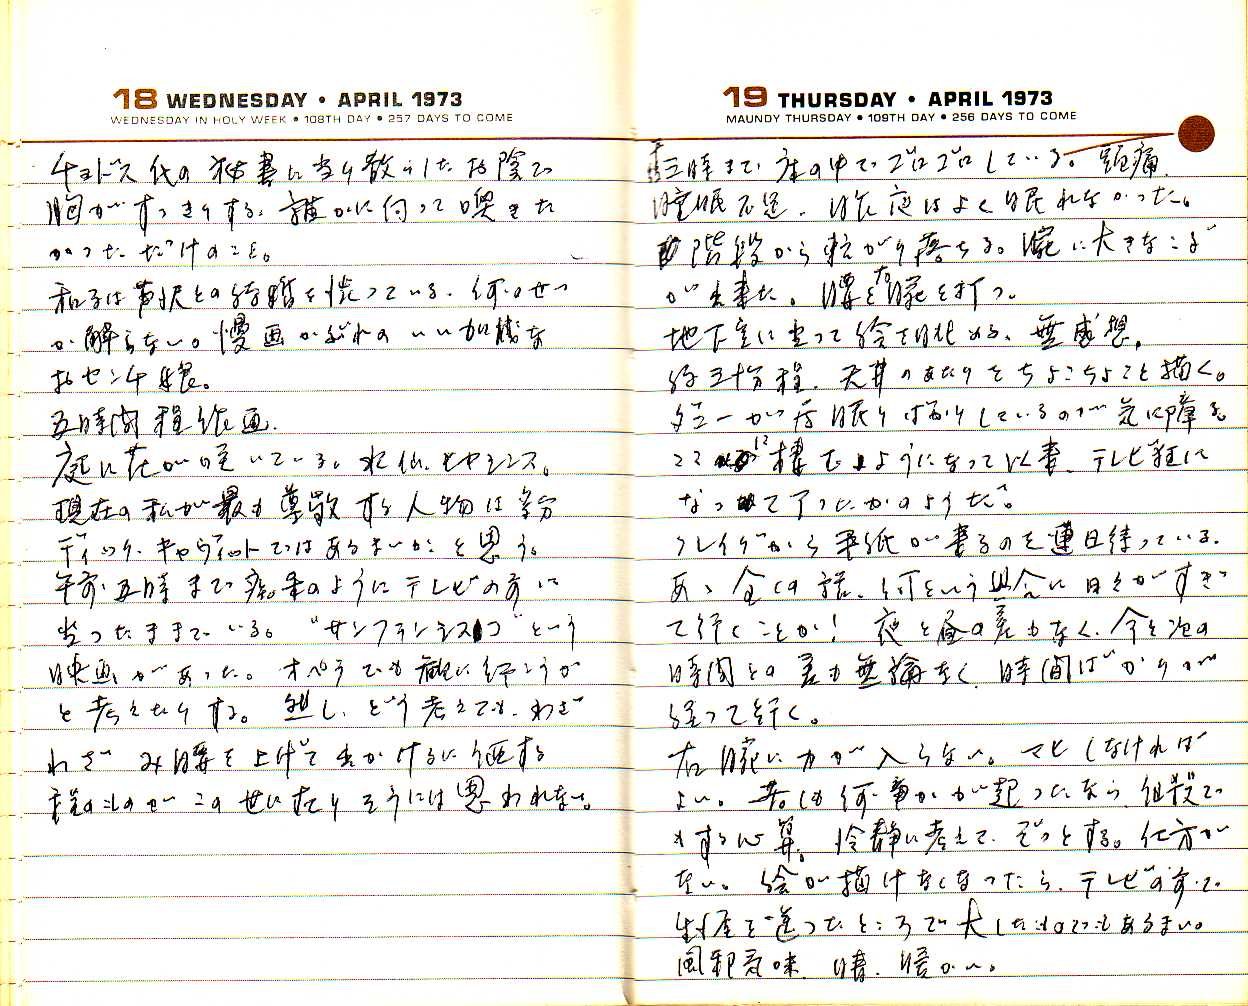 18 WEDNESDAY • APRIL 1973
WEDNESDAY IN HOLY WEEK • 108TH DAY • 257 DAYS TO COME
代の秘書に当り散らしたお陰で
胸がすっきりする。誰かに向って喚きた
かっただけのこと。
和子は芦沢との結婚を渋っている。何のせい
か解らない。漫画かぶれのいい加減な
おセンチ娘。
五時間程絵画。
庭に花が咲いている。水仙、ヒヤシンス。
現在の私が最も尊敬する人物は多分
ディック・キャヴィットではあるまいか、と思う。
午前五時まで痴呆のようにテレビの前に
坐ったままでいる。“サンフランシスコ”という
映画があった。オペラでも観に行こうか
と考えたりする。然し、どう考えても、わざ
わざ み腰を上げて出かけるに価する
程のものがこの世に在りそうには思われない。
19 THURSDAY • APRIL 1973
MAUNDY THURSDAY • 109TH DAY • 256 DAYS TO COME
三時まで床の中でゴロゴロしている。頭痛、
睡眠不足。昨夜はよく眠れなかった。
階段から転がり落ちる。腕に大きなこぶ
が出来た。腰と右腕を打つ。
地下室に坐って絵を眺める。無感想。
約三十分程、天井のあたりをちょこちょこと描く。
ダニーが居眠りばかりしているのが気に障る。
ココに棲むようになって以来、テレビ狂に
なって了ったかのようだ。
クレイグから手紙が来るのを連日待っている。
あゝ全くの話、何という具合に日々がすぎ
て行くことか！夜と昼の差もなく、今と次の
時間との差も無論なく、時間ばかりが
経って行く。
右腕に力が入らない。マヒしなければ
よい。若しも何事かが起ったなら、自殺で
もする心算。冷静に考えて、ぞっとする。仕方が
ない。絵が描けなくなったら、テレビの前で
生涯を送ったところで大したものでもあるまい。
風邪気味。晴、暖かい。